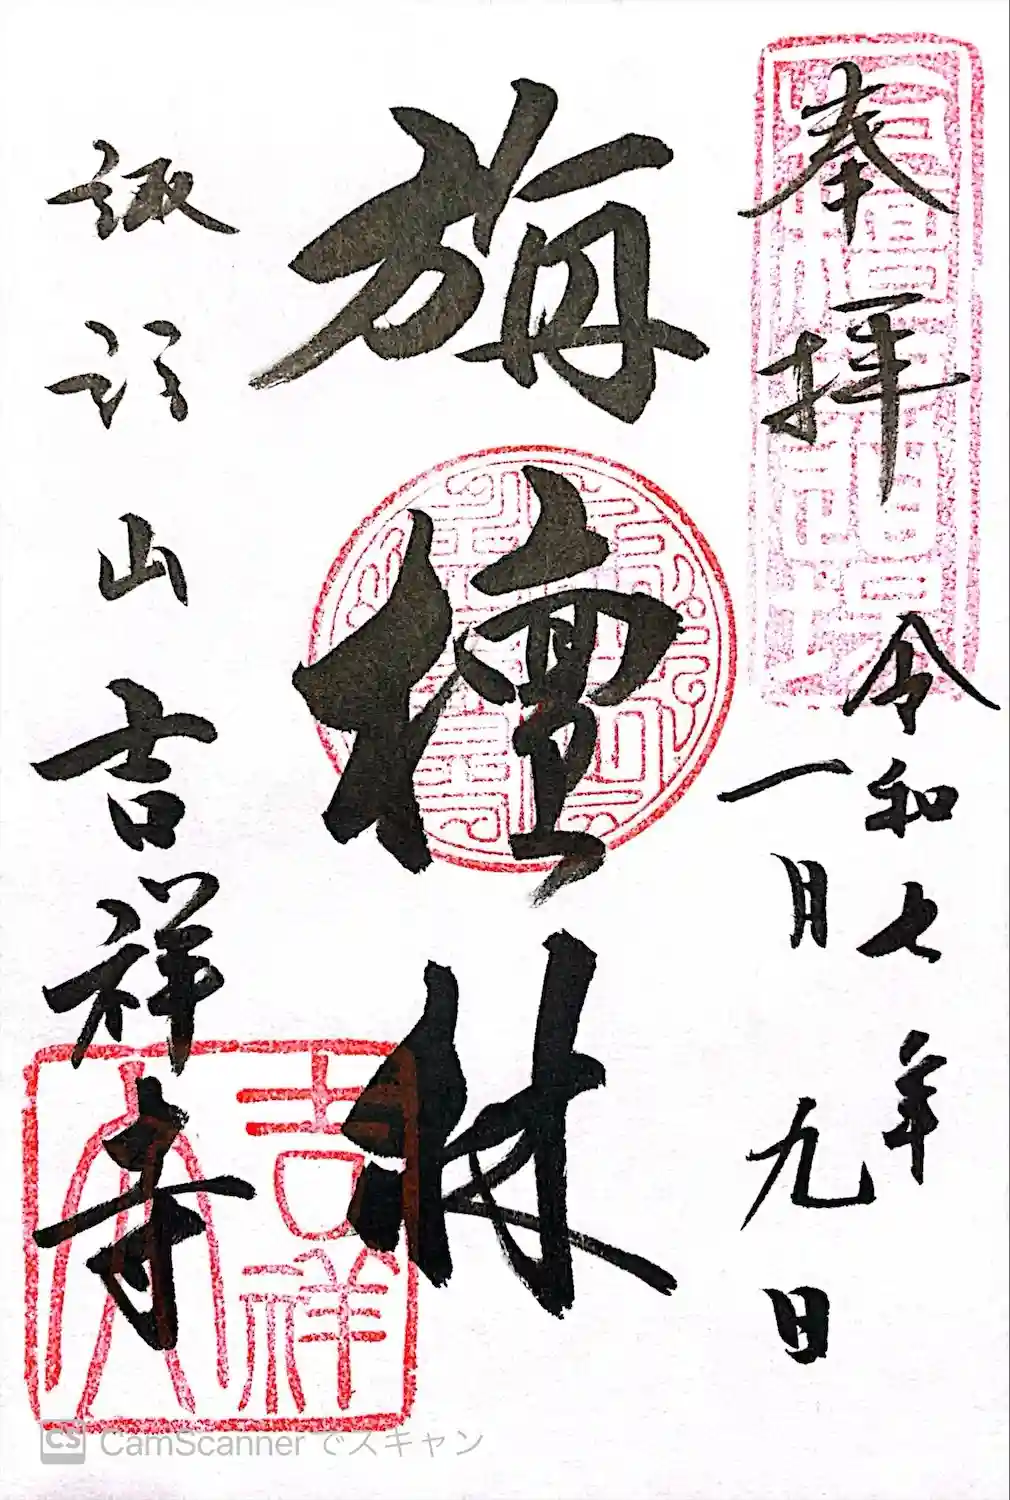 奉拝
令和七年
一月九日
旃檀林
諏訪山吉祥寺
吉祥
CS CamScanner でスキャン